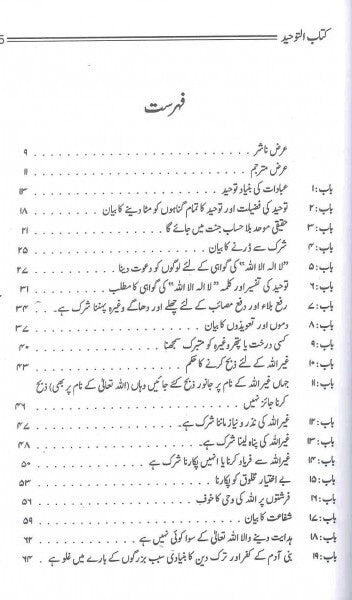 کتاب التوحید 5
فہرست
عرض ناشر ۹
عرض مترجم ۱۱
باب: ۱ عبادات کی بنیاد توحید ۱۳
باب: ۲ توحید کی فضیلت اور توحید کا تمام گناہوں کو مٹا دینے کا بیان ۱۸
باب: ۳ حقیقی موحد بلا حساب جنت میں جائے گا ۲۱
باب: ۴ شرک سے ڈرنے کا بیان ۲۵
باب: ۵ "لا الہ الا اللہ" کی گواہی کے لئے لوگوں کو دعوت دینا ۲۷
باب: ۶ توحید کی تفسیر اور کلمہ "لا الہ الا اللہ" کی گواہی کا مطلب ۳۱
باب: ۷ رفع بلاء اور دفع مصائب کے لئے چھلے اور دھاگے وغیرہ پہننا شرک ہے۔ ۳۴
باب: ۸ دموں اور تعویذوں کا بیان ۳۷
باب: ۹ کسی درخت یا پتھر وغیرہ کو متبرک سمجھنا ۴۰
باب: ۱۰ غیر اللہ کے لئے ذبح کرنے کا حکم ۴۳
باب: ۱۱ جہاں غیر اللہ کے نام پر جانور ذبح کئے جائیں وہاں (اللہ تعالیٰ کے نام پر بھی) ذبح
کرنا جائز نہیں ۴۶
باب: ۱۲ غیر اللہ کی نذر و نیاز ماننا شرک ہے۔ ۴۷
باب: ۱۳ غیر اللہ کی پناہ لینا شرک ہے۔ ۴۸
باب: ۱۴ غیر اللہ سے فریاد کرنا یا انہیں پکارنا شرک ہے ۵۰
باب: ۱۵ بے اختیار مخلوق کو پکارنا ۵۳
باب: ۱۶ فرشتوں پر اللہ کی وحی کا خوف ۵۶
باب: ۱۷ شفاعت کا بیان ۵۹
باب: ۱۸ ہدایت دینے والا اللہ تعالیٰ کے سوا کوئی نہیں ہے ۶۲
باب: ۱۹ بنی آدم کے کفر اور ترک دین کا بنیادی سبب بزرگوں کے بارے میں غلو ہے ۶۴